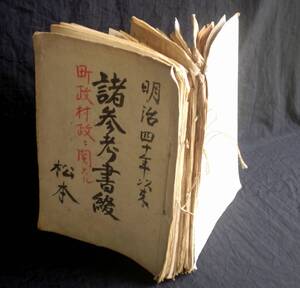 明治四十年以来
諸参考書綴
町政村政ニ関スル
松本